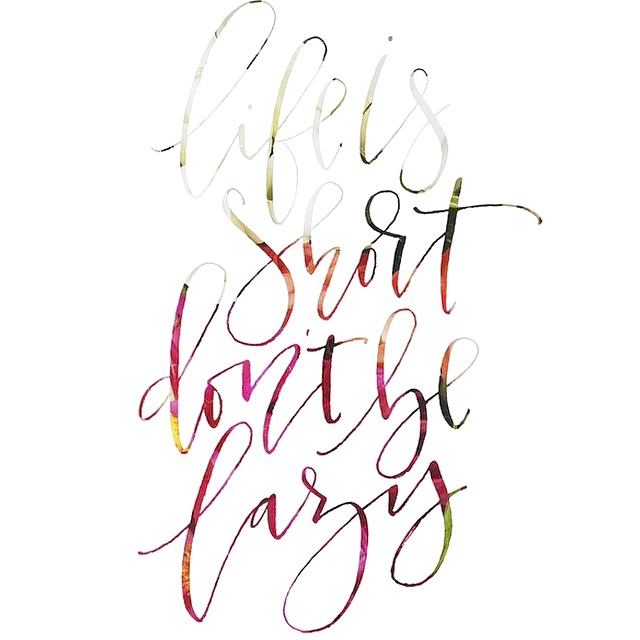 life is
short
don't be
lazy